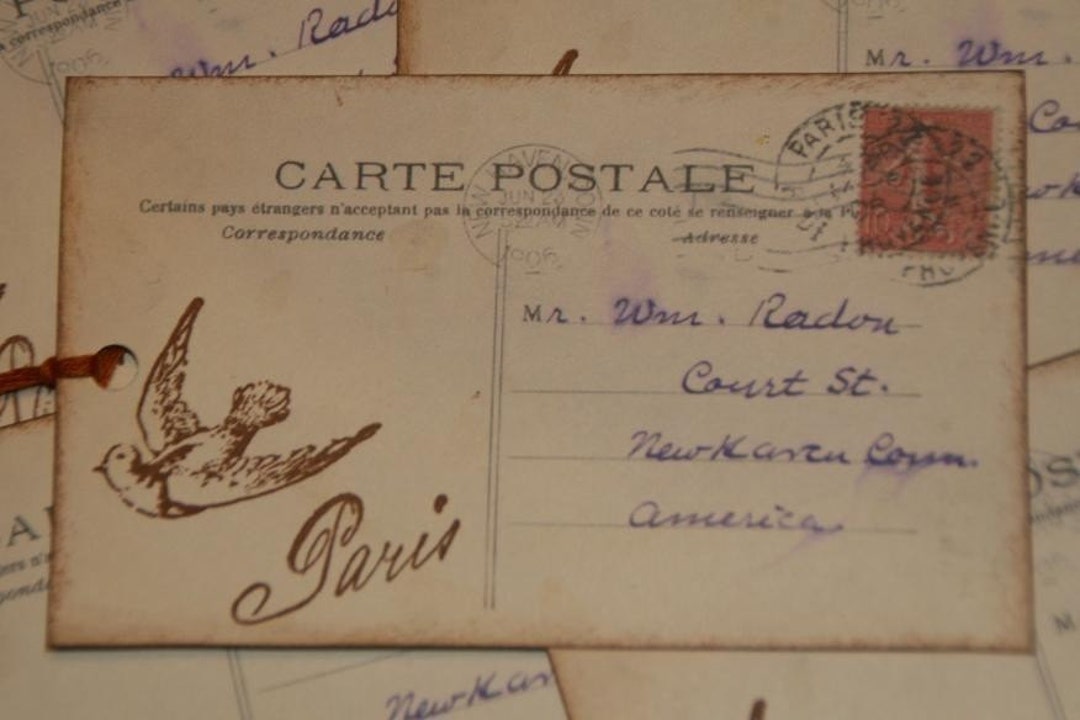 Mr. Wm.
CARTE POSTALE
PARIS
Certains pays étrangers n'acceptant pas la correspondance de ce coté se renseigner à la
Correspondance
Adresse
NEW HAVEN
JUN 23
1906
Mr. Wm. Radou
Court St.
New Haven Conn.
America
Paris
New Haven